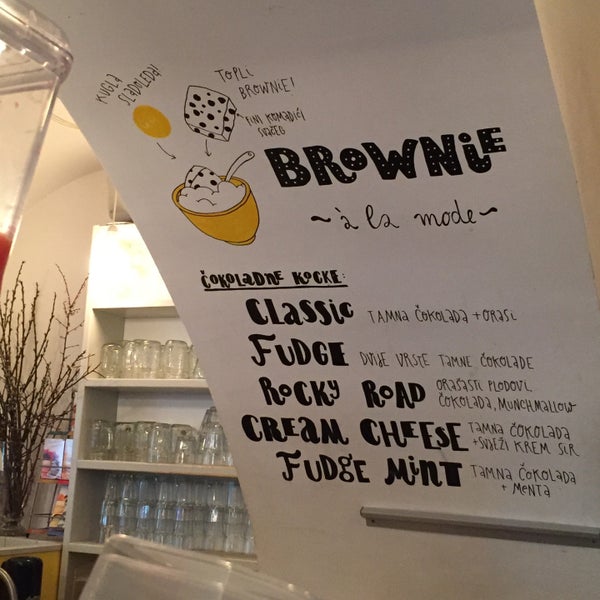 KUGLA
SLADOLEDA!
TOPLI
BROWNIE!
FINI KOMADIĆI
SVAČEG
BROWNIE
~à la mode~
ČOKOLADNE KOCKE:
CLASSIC TAMNA ČOKOLADA + ORASI
FUDGE DVIJE VRSTE TAMNE ČOKOLADE
ROCKY ROAD ORAŠASTI PLODOVI,
ČOKOLADA, MUNCHMALLOW
CREAM CHEESE TAMNA ČOKOLADA
+ SVJEŽI KREM SIR
FUDGE MINT TAMNA ČOKOLADA
+ MENTA